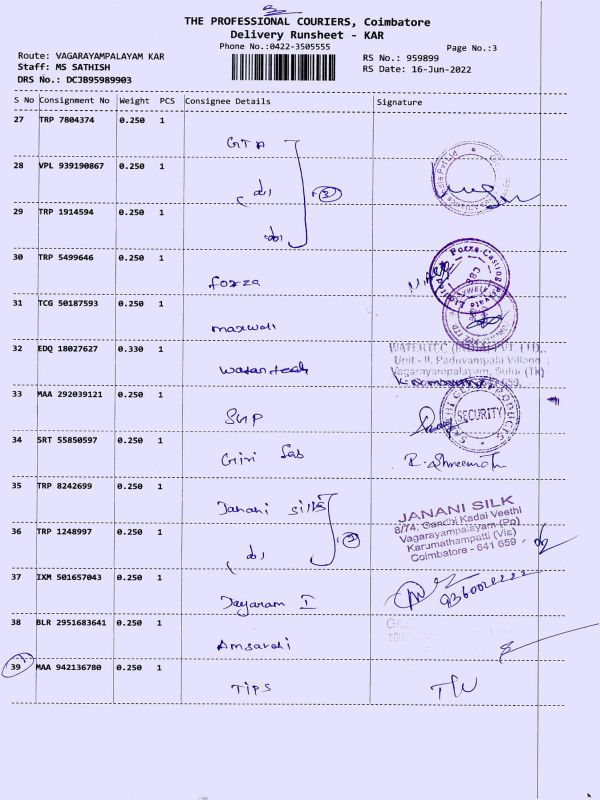 THE PROFESSIONAL COURIERS, Coimbatore
Delivery Runsheet - KAR
Phone No.:0422-3505555
Page No.:3
Route: VAGARAYAMPALAYAM KAR
Staff: MS SATHISH
DRS No.: DCJB95989903
RS No.: 959899
RS Date: 16-Jun-2022
S No Consignment No Weight PCS Consignee Details Signature
27 TRP 7804374 0.250 1
GTA
28 VPL 939190867 0.250 1
(do) (3)
29 TRP 1914594 0.250 1
(do)
30 TRP 5499646 0.250 1
forza
31 TCG 50187593 0.250 1
maxwell
32 EDQ 18027627 0.330 1
Unit - II, Paduvampala Village
Vagarayampalayam, Sulur (TK)
33 MAA 292039121 0.250 1
SKP
SECURITY
34 SRT 55850597 0.250 1
Giri Fab
35 TRP 8242699 0.250 1
Janani Silks
JANANI SILK
8/74, Gandhi Kadai Veethi
Vagarayampalayam (Po)
Karumathampatti (Via)
Coimbatore - 641 659
36 TRP 1248997 0.250 1
(do) (2)
37 IXM 501657043 0.250 1
Jayaram I
38 BLR 2951683641 0.250 1
39 MAA 942136780 0.250 1
TIPS